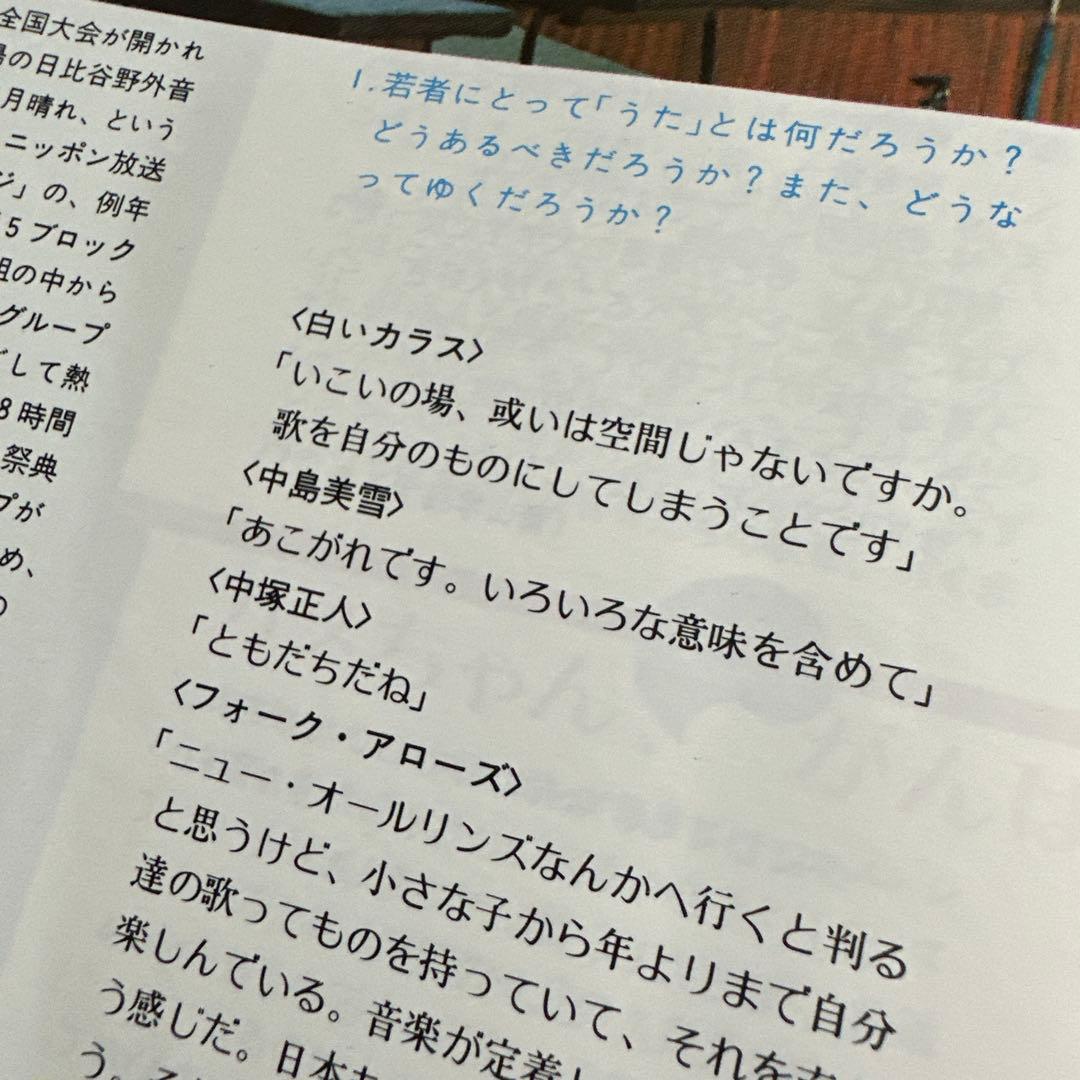 全国大会が開かれ
の日比谷野外音
月晴れ、という
ニッポン放送
ジ」の、例年
5ブロック
組の中から
グループ
して熱
8時間
祭典
プが
め、
の
1.若者にとって「うた」とは何だろうか?
どうあるべきだろうか?また、どうな
ってゆくだろうか?
〈白いカラス〉
「いこいの場、或いは空間じゃないですか。
歌を自分のものにしてしまうことです」
〈中島美雪〉
「あこがれです。いろいろな意味を含めて」
〈中塚正人〉
「ともだちだね」
〈フォーク・アローズ〉
「ニュー・オールリンズなんかへ行くと判る
と思うけど、小さな子から年よりまで自分
達の歌ってものを持っていて、それを
楽しんでいる。音楽が定着し
う感じだ。日本
う。